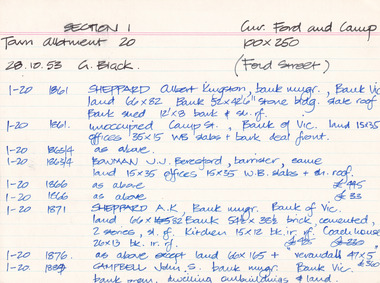 SECTION 1 Cnr. Ford and Camp
Town allotment 20 100 x 250
28.10.53 G. Black. (Ford Street)
1-20 1861 SHEPPARD Albert Kingston, bank mngr., Bank Vic
land 66x82 Bank 52x42'6" stone bldg. slate roof
Bank shed 12'x8 bark & sh. rf.
1-20 1861. unoccupied Camp St., Bank of Vic. land 15x35
offices 35x15 WB slabs + bark deal front.
1-20 1863/4 as above.
1-20 1863/4 BOWMAN W.J. Beresford, barrister, same
land 15x35 offices 15x35 W.B. slabs + sh. roof.
1-20 1866 as above £445
1-20 1866 as above £33
1-20 1871 SHEPPARD A.K, Bank mngr. Bank of Vic.
land 66x165 Bank 54½ x 38½ brick, cemented,
2 stories, sl. rf. Kitchen 15x12 bk. ir. rf. Coachhouse
26x13 bk. ir. rf.
1-20 1876. as above except land 66x165 + verandah 47x5 £360
1-20. CAMPBELL John S. bank mngr. Bank Vic.
bank prem. dwelling outbuildings & land.